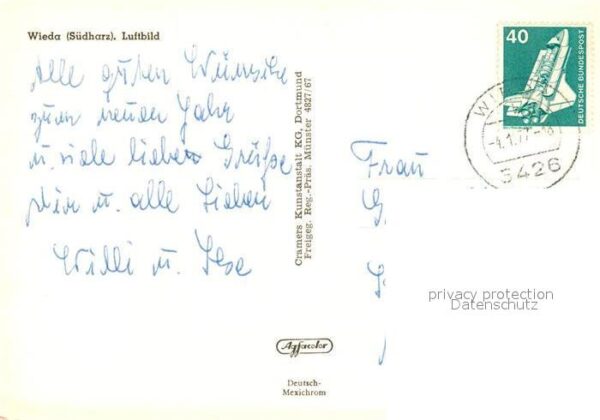 Wieda (Südharz). Luftbild
Alle guten Wünsche
zum neuen Jahr
u. viele lieben Grüße
Dir u. alle Lieben
Willi u. Ilse
Cramers Kunstanstalt KG, Dortmund
Freigeg. Reg.-Präs. Münster 4827/67
Agfacolor
Deutsch-
Mexichrom
40
DEUTSCHE BUNDESPOST
WI
-4.1.77-18
3426
Frau
privacy protection
Datenschutz